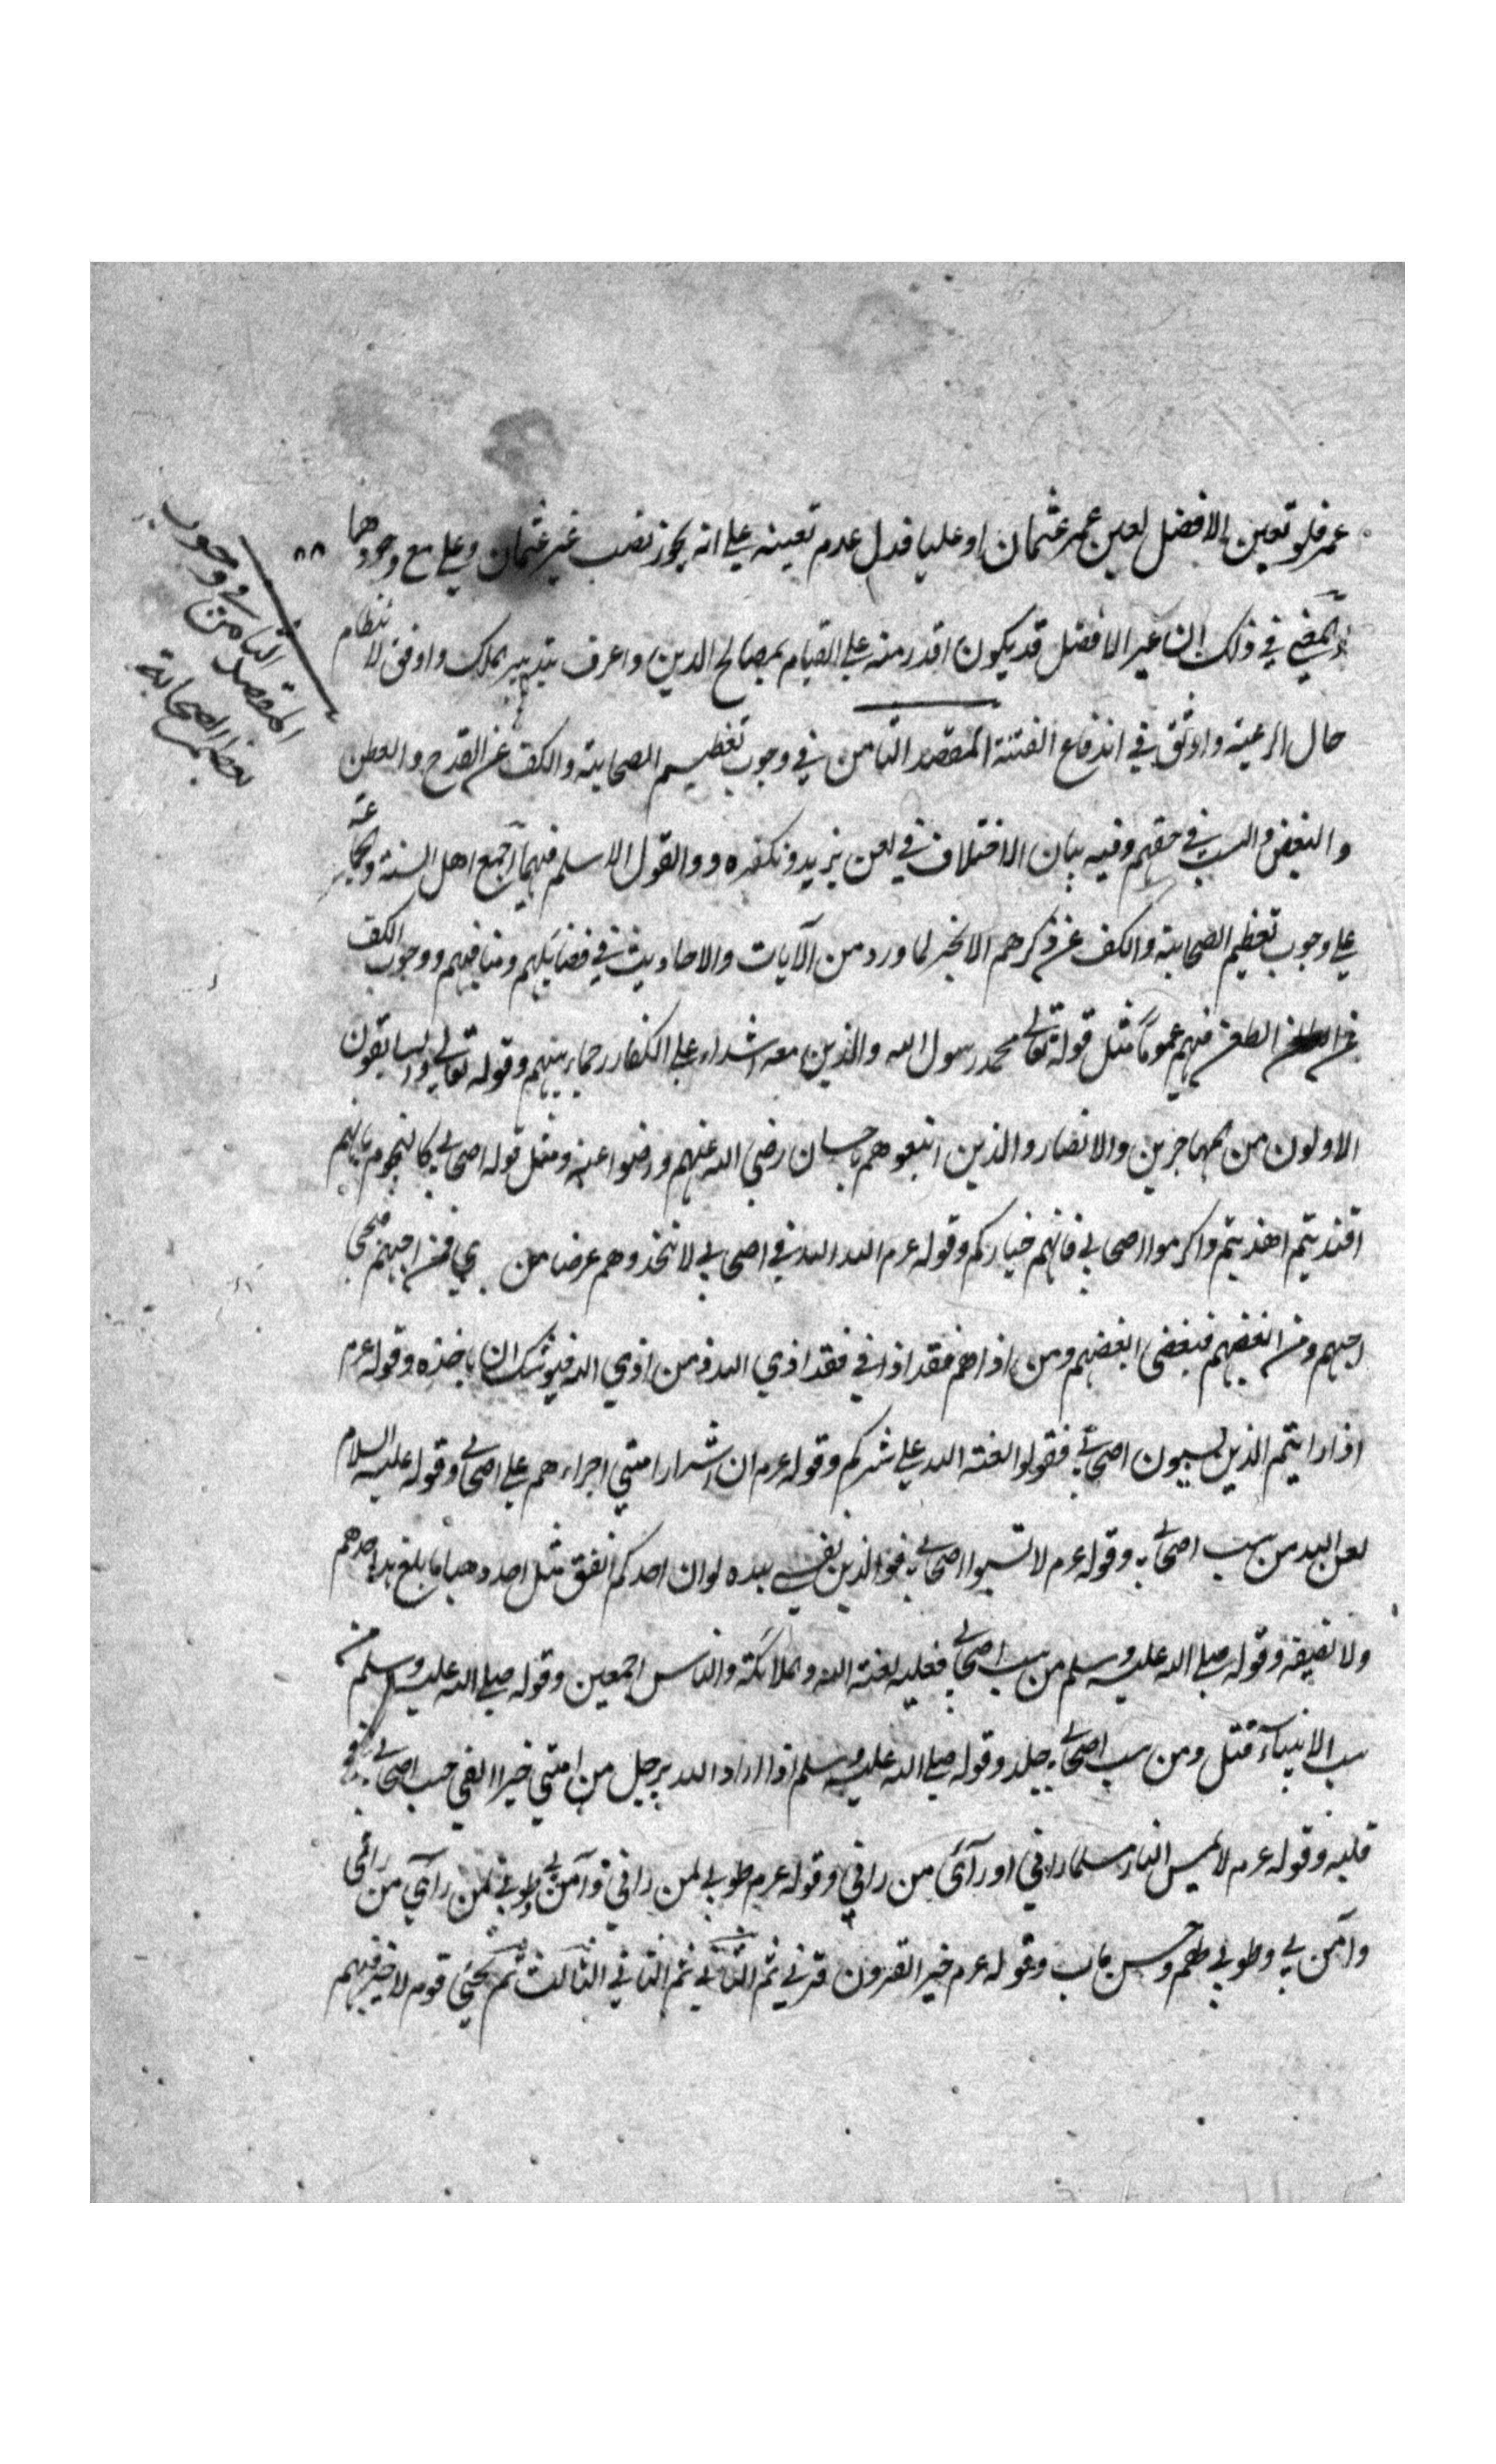 عمر فلو تعين الافضل لعين عمر عثمان او عليا فدل عدم تعينه على انه يجوز نصب غير عثمان وعلي مع وجودهما
٨٨
المقصد الثامن في وجوب
تعظيم الصحابة
في ذلك ان غير الافضل قد يكون اقدر منه على القيام بمصالح الدين واعرف بتدبير الملك واوفق لانتظام
حال الرعية واوثق في اندفاع الفتنة المقصد الثامن في وجوب تعظيم الصحابة والكف عن القدح والطعن
والبغض والسب في حقهم وفيه بيان الاختلاف في لعن يزيد وتكفره ووالقول الاسلم فيهما اجمع اهل السنة والجماعة
على وجوب تعظيم الصحابة والكف عن ذكرهم الا بخير لما ورد من الآيات والاحاديث في فضائلهم ومناقبهم ووجوب الكف
عن الطعن فيهم عموما مثل قوله تعالى محمد رسول الله والذين معه اشداء على الكفار رحماء بينهم وقوله تعالى والسابقون
الاولون من المهاجرين والانصار والذين اتبعوهم باحسان رضي الله عنهم ورضوا عنه ومثل قوله اصحابي كالنجوم بايهم
اقتديتم اهتديتم واكرموا اصحابي فانهم خياركم وقوله عرم الله الله في اصحابي لا تتخذوهم عرضا من بعدي فمن احبهم فبحبي
احبهم ومن ابغضهم فببغضي ابغضهم ومن اذاهم فقد اذاني فقد اذي الله ومن اذي الله فيوشك ان ياخذه وقوله عرم
اذا رايتم الذين يسبون اصحابي فقولوا لعنة الله على شركم وقوله عرم ان اشرار امتي اجراءهم على اصحابي وقوله عليه السلام
لعن الله من سب اصحابي وقوله عرم لا تسبوا اصحابي فوالذين نفسي بيده لو ان احدكم انفق مثل احد ذهبا ما بلغ مد احدهم
ولا نصيفه وقوله صلى الله عليه وسلم من سب اصحابي فعليه لعنة الله والملائكة والناس اجمعين وقوله صلى الله عليه وسلم من
سب الانبيآء قتل ومن سب اصحابي جلد وقوله صلى الله عليه وسلم اذا اراد الله برجل من امتي خيرا القي حب اصحابي في
قلبه وقوله عرم لا يمس النار مسلما راني او رآى من راني وقوله عرم طوبي لمن راني وآمن بي وطوبي لمن رآي من راني
وآمن بي وطوبي لهم وحسن ماب وقوله عرم خير القرون قرني ثم الثاني ثم الثاني الثالث ثم يجئ قوم لا خير فيهم